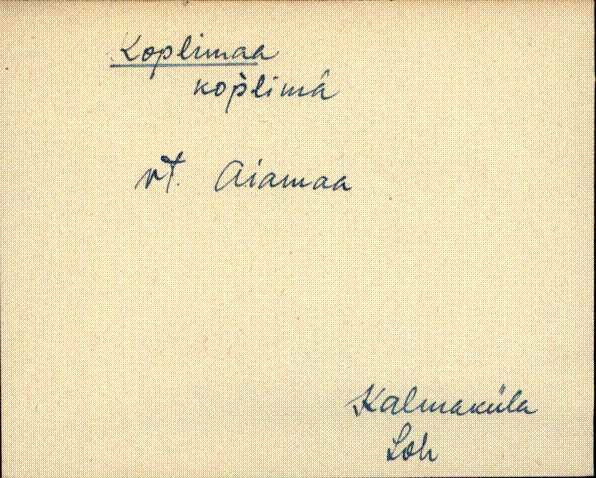 Koplimaa
kop̀limā
vt. Aiamaa
Kalmaküla
Loh